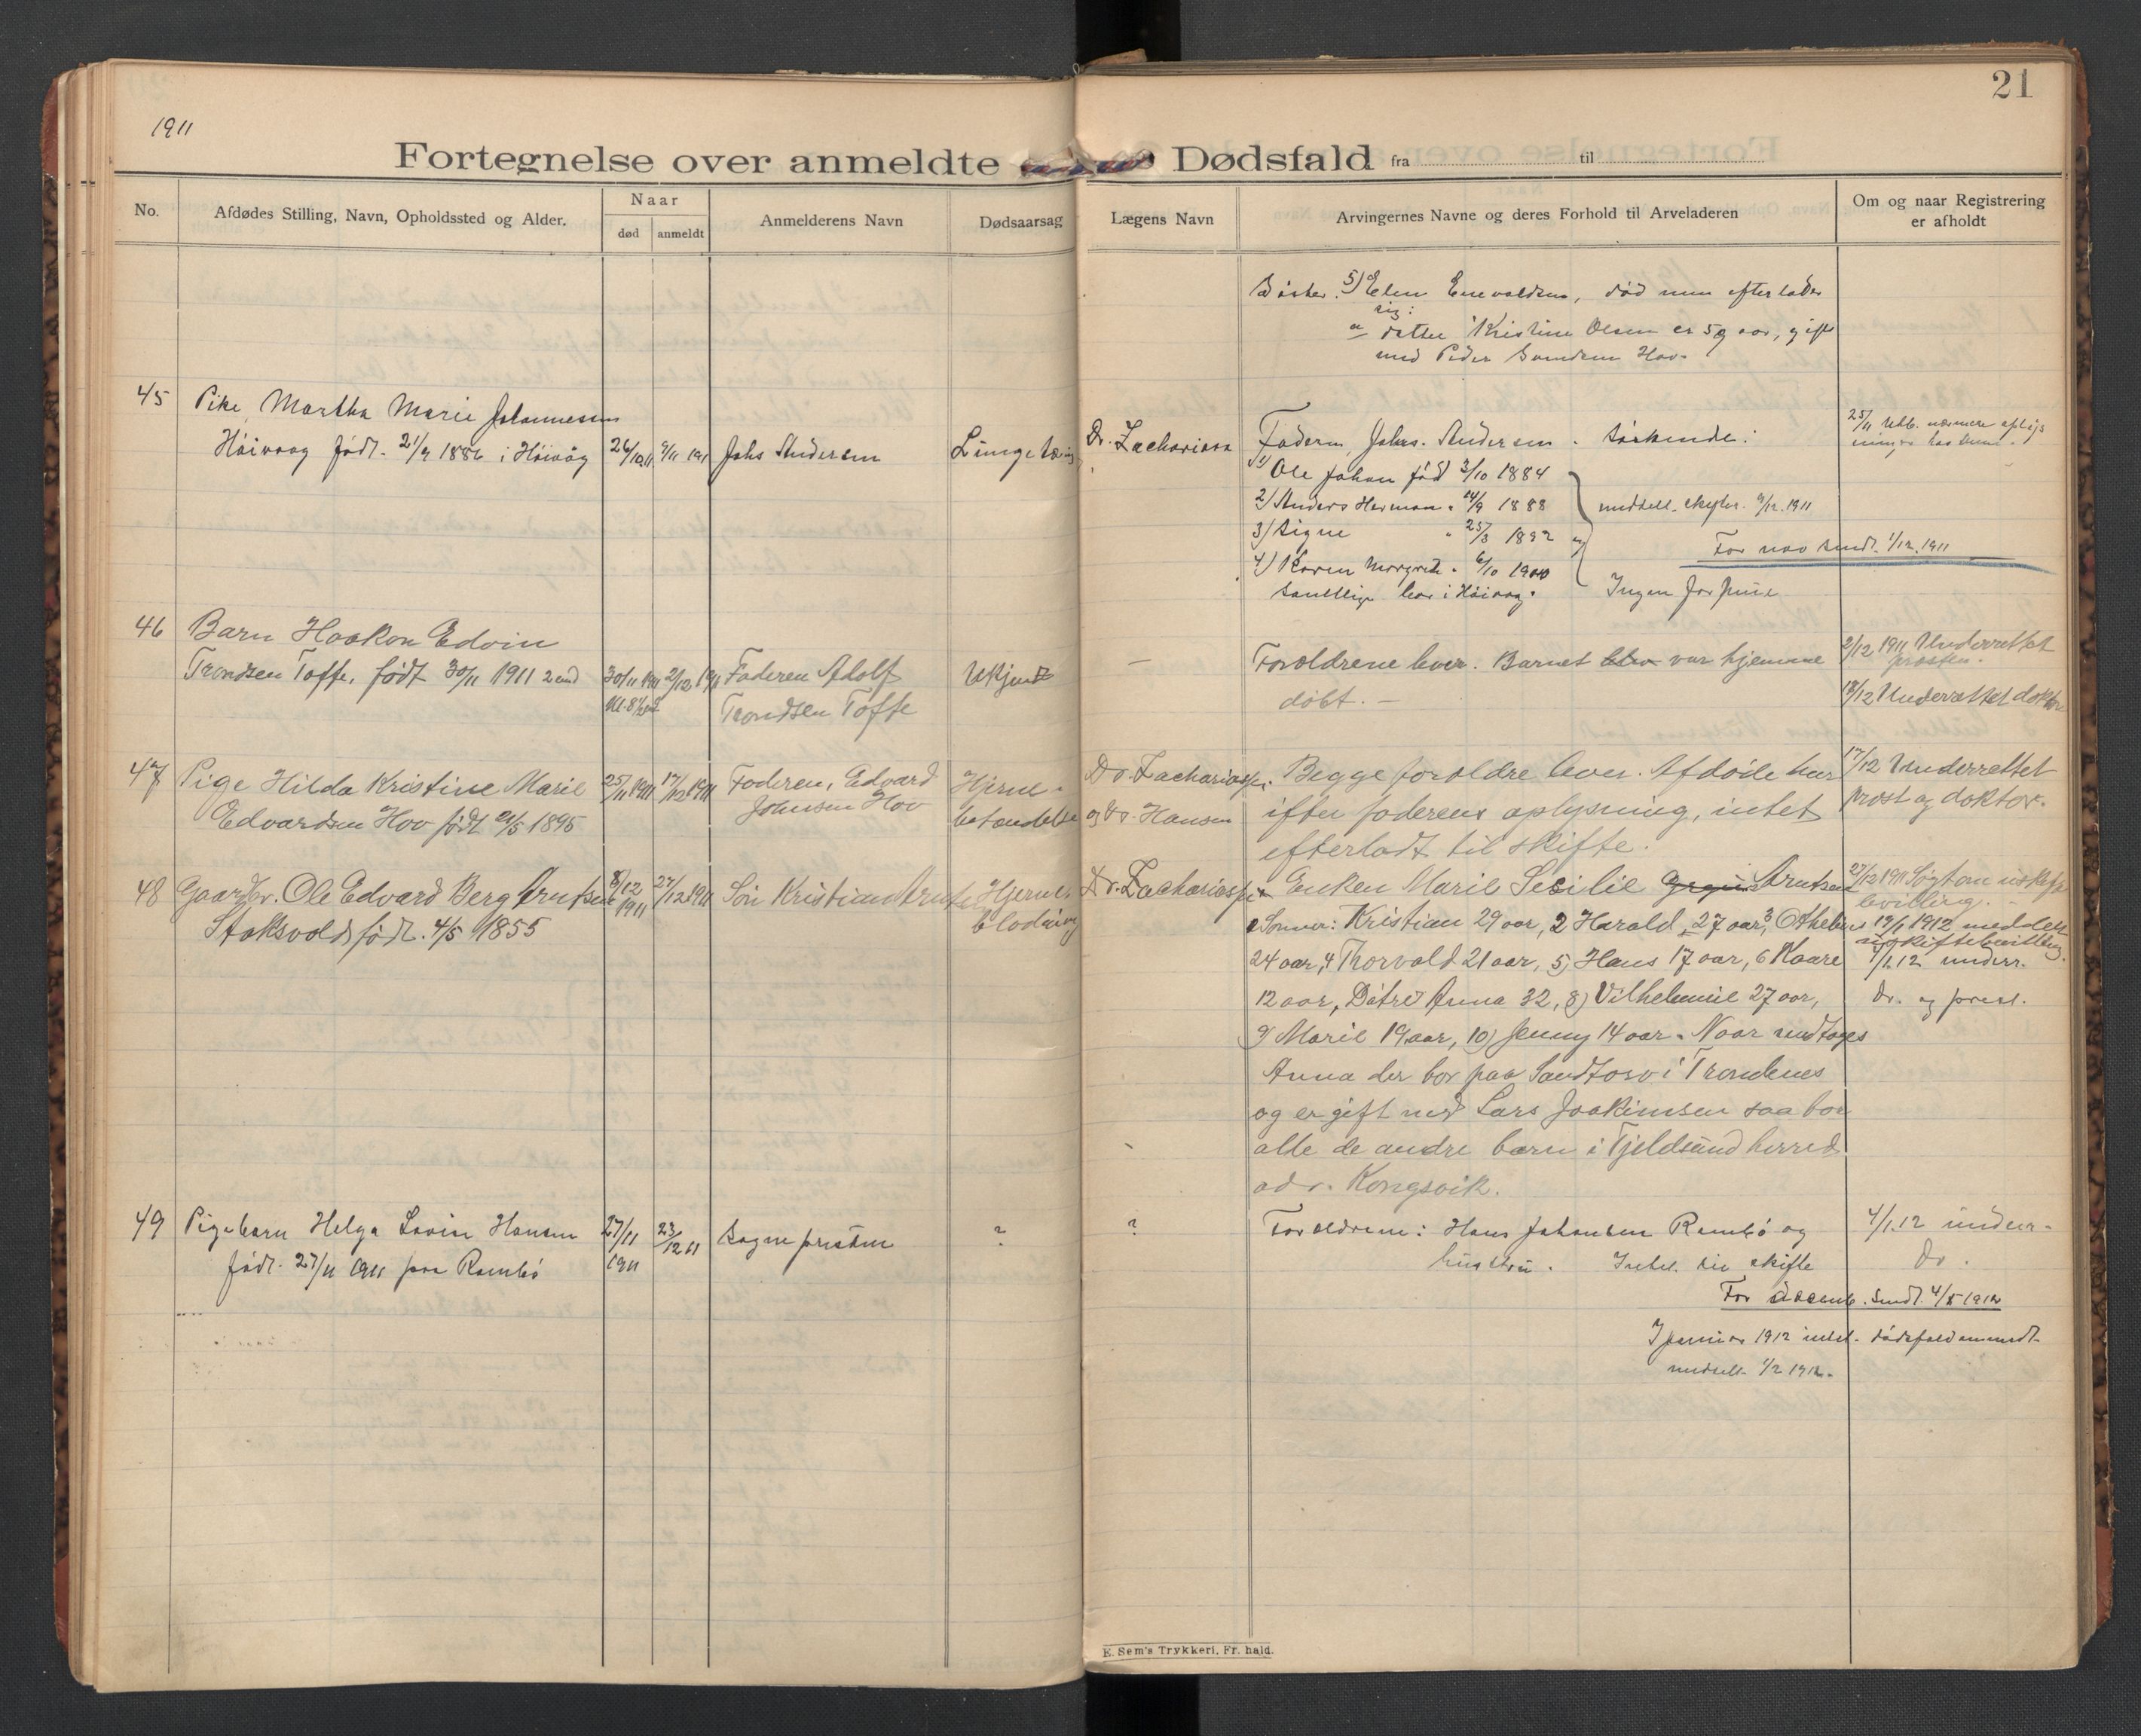 1911
21
Fortegnelse over anmeldte Dødsfald fra til
No.
Afdødes Stilling, Navn, Opholdssted og Alder.
Naar
død
anmeldt
Anmelderens Navn
Dødsaarsag
Lægens Navn
Arvingernes Navne og deres Forhold til Arveladeren
Om og naar Registrering
er afholdt
5) Elen Enevoldsen, död men efterlader
sig:
a datter Kristine Olsen er 59 aar, gift
med Peder Hov.
45
Pike Martha Marie Johannesen
Höivaag född. 21/9 1886 i Höivåg
26/10 11
9/11 1911
Johs Andersen
Dr. Zachariasen
Faderen, Johs. Andersen. Söskende:
1) Ole Johan född 3/10 1884
2) Anders Herman " 14/9 1888
3) Signe " 25/3 1892
4) Karen Margrete " 6/10 1900
samtlige bor i Höivaag.
meddelt skifter. 9/12. 1911
For nov sendt. 1/12. 1911
Ingen formue
25/11 Udb. nærmere oplys
46
Barn Haakon Edvin
Trondsen Toffe, födt 30/11 1911
30/11 1911
2/12 1911
Faderen Adolf
Trondsen Toffe
Ukjendt
—
Forældrene lever. Barnet blev var hjemme
döbt. —
2/12 1911 Underrettet
presten.
18/12 Underrettet doktor
47
Pige Hilda Kristine Marie
Edvardsen Hov födt 21/5 1895
25/11 1911
17/12 1911
Faderen, Edvard
Johnsen Hov
Hjerne-
betændelse
Dr. Zachariassen
og Dr. Hansen
Begge foreldre lever. Afdöde har
ifter faderens oplysning, intet
efterladt til skifte.
17/12 Underrettet
prost og doktor.
48
Gaardbr. Ole Edvard Berg Arntsen
Stoksvold födt. 4/5 1855
8/12
1911
27/12 1911
Sön Kristian Arntsen
Hjerne-
blödning
Dr. Zachariassen
Enken Marie Sesilie Arntsen
Sönner: Kristian 29 aar, 2 Harald, 27 aar, 3 Othelius
24 aar, 4 Thorvald 21 aar, 5) Hans 17 aar, 6 Kaare
12 aar, Dötre Anna 32, 8) Vilhelmine 27 aar,
9) Marie 19 aar, 10) Jenny 14 aar. Naar undtages
Anna der bor paa Sandtorv i Trondenes
og er gift med Lars Joakimsen saa bor
alle de andre barn i Tjeldsund herred
adr. Kongsvik.
27/12 1911 Sögt om uskifte
bevilling.
19/1 1912 meddelt
uskiftebevilling
4/1.12 underr.
Dr. og prest.
49
Pigebarn Helga Lovise Hansen
födt. 27/11 1911 paa Rambö
27/11
1911
23/12 11
Sognepresten
?
?
Forældrene: Hans Johansen Rambö og
hustru. Intet til skifte
4/1.12 underr.
Dr.
For decemb. sendt. 4/1 1912
I januar 1912 intet dödsfald anmeldt
meddelt 1/2 1912.
E. Sem's Trykkeri, Fr. hald.